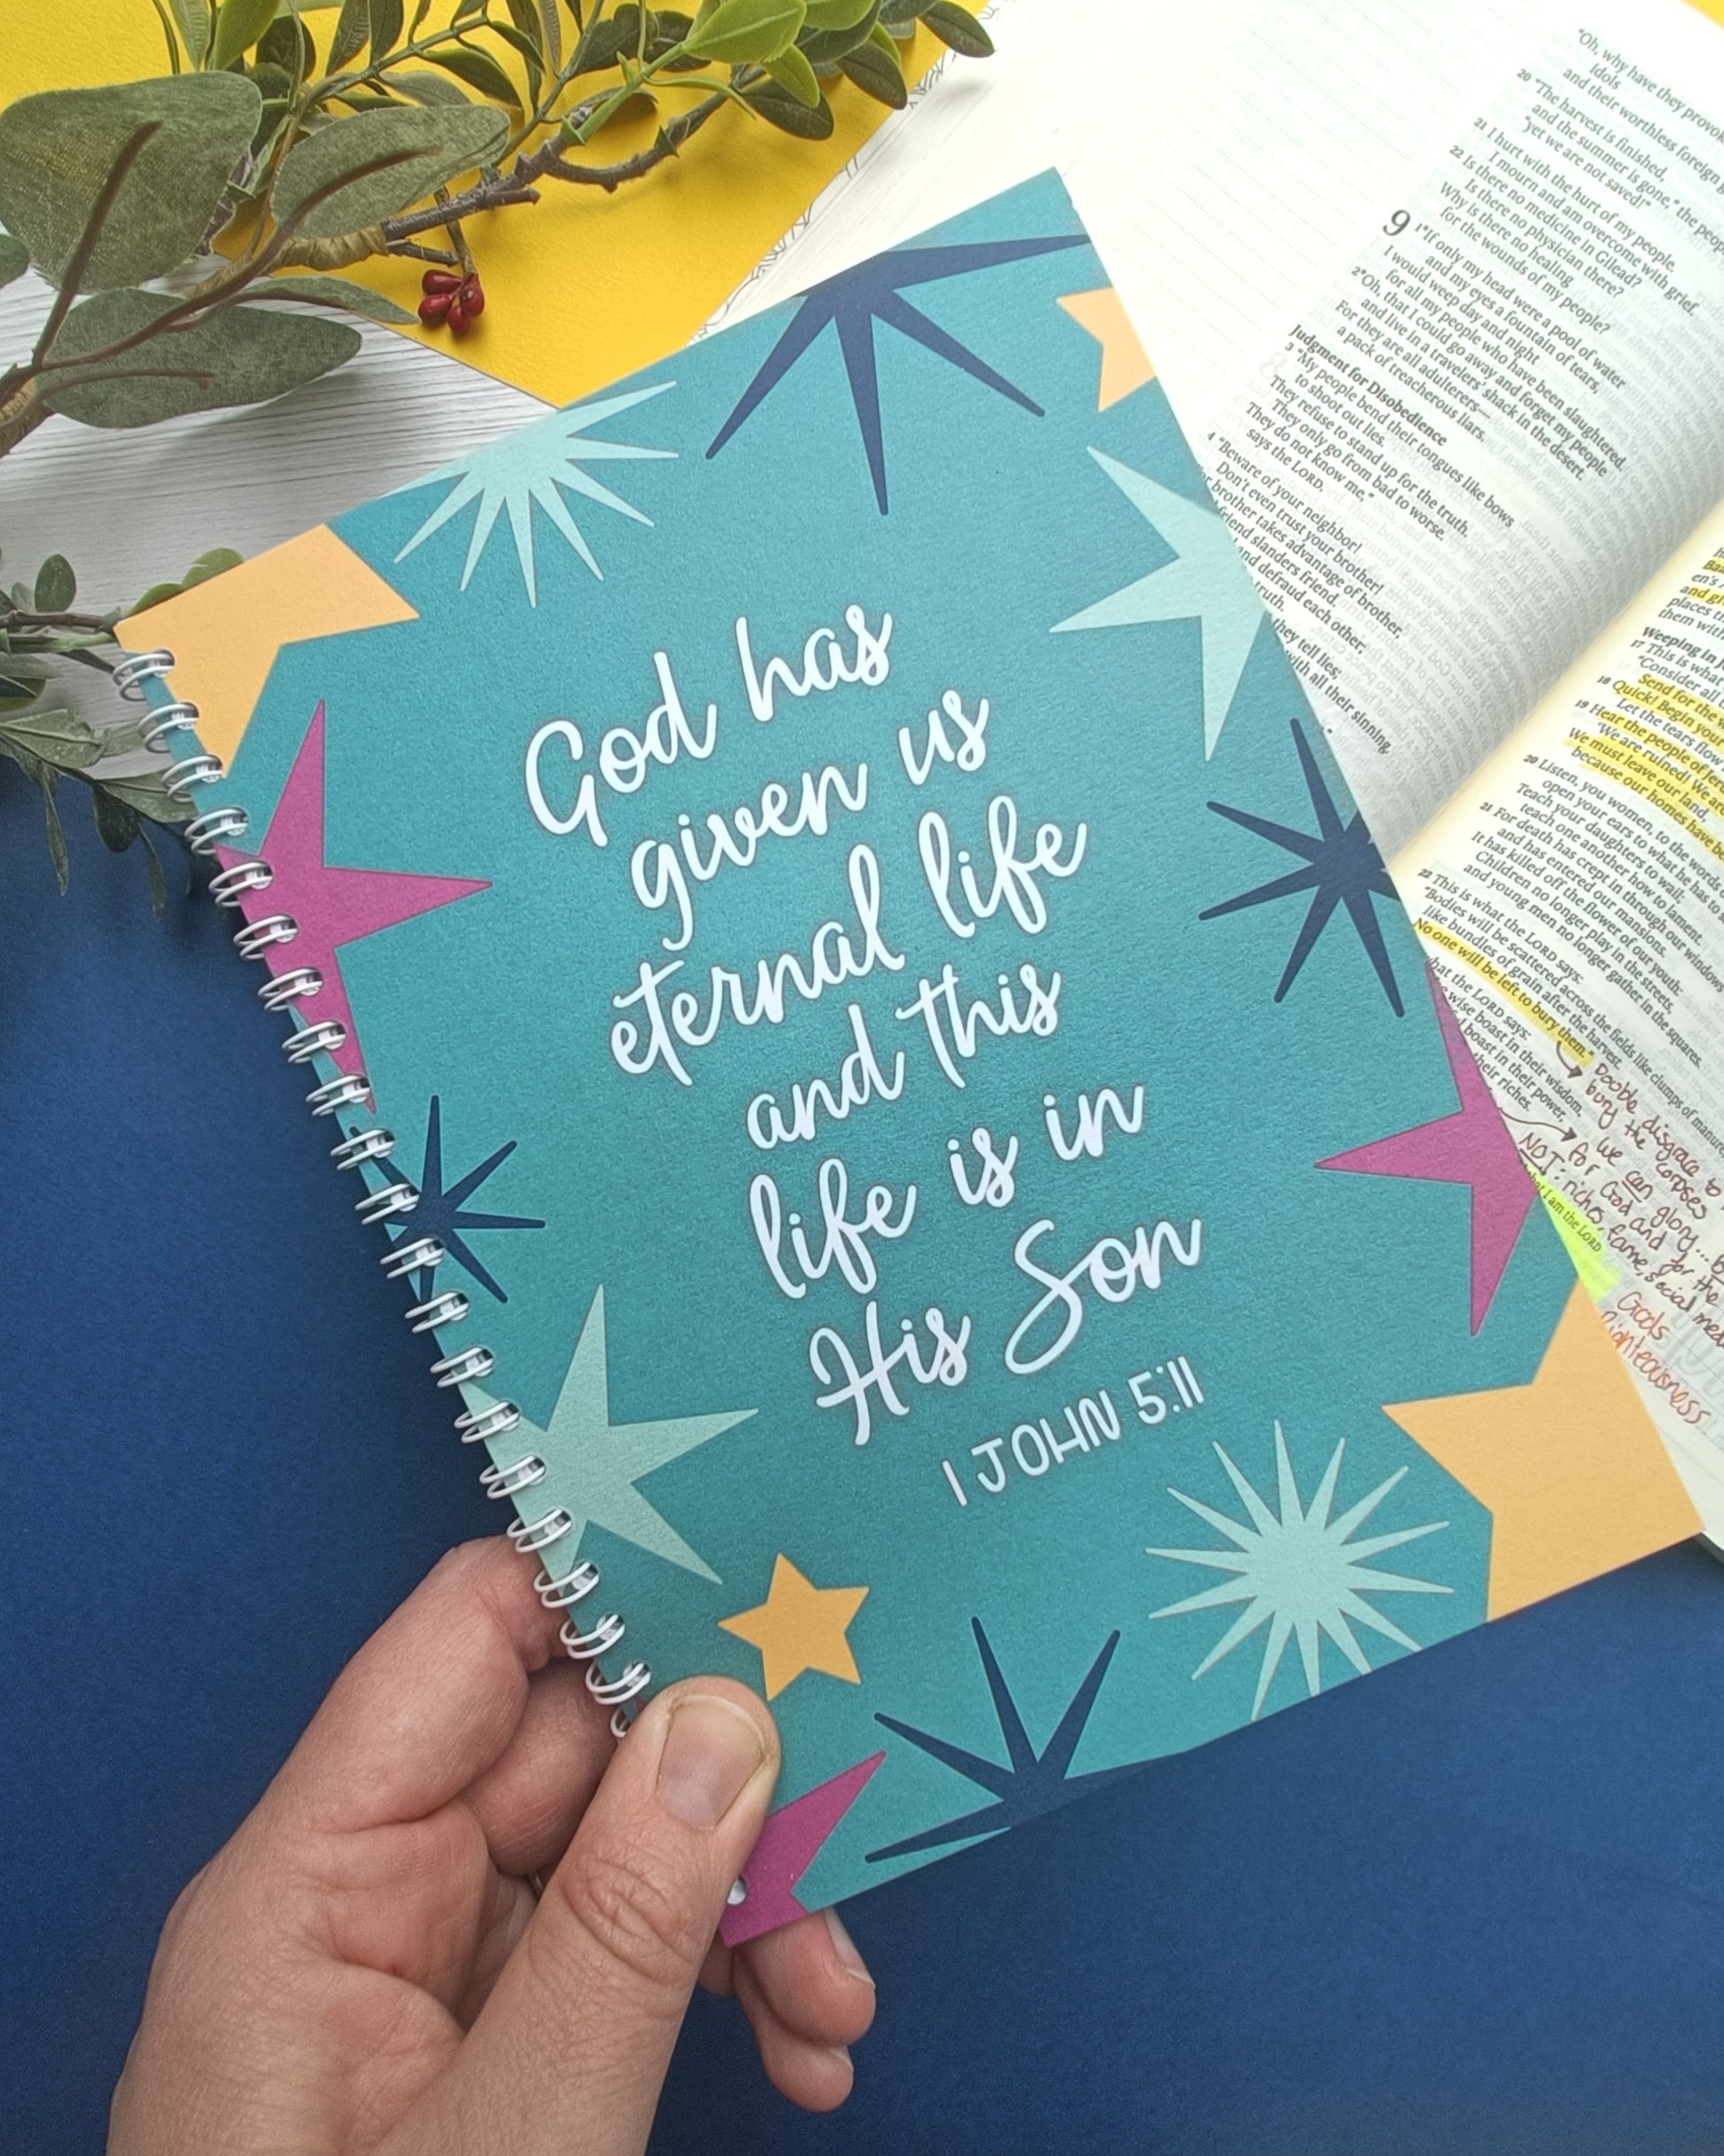 God has
given us
eternal life
and this
life is in
His Son
1 JOHN 5:11
"Oh, why have they provok
idols
and their worthless foreign
20 "The harvest is finished,
and the summer is gone," the peop
"yet we are not saved!"
21 I hurt with the hurt of my people.
I mourn and am overcome with grief.
22 Is there no medicine in Gilead?
Is there no physician there?
Why is there no healing
for the wounds of my people?
9 1 "If only my head were a pool of water
and my eyes a fountain of tears,
I would weep day and night
for all my people who have been slaughtered.
2 "Oh, that I could go away and forget my people
and live in a travelers' shack in the desert.
For they are all adulterers—
a pack of treacherous liars.
Judgment for Disobedience
3 "My people bend their tongues like bows
to shoot out lies.
They refuse to stand up for the truth.
They only go from bad to worse.
They do not know me,"
says the LORD.
4 "Beware of your neighbor!
Don't even trust your brother!
or brother takes advantage of brother,
friend slanders friend.
and defraud each other;
truth.
they tell lies;
with all their sinning.
Weeping in J
17 This is what
"Consider all
Send for the
18 Quick! Begin your
Let the tears flow
19 Hear the people of Jer
'We are ruined! We ar
We must leave our land,
because our homes have be
20 Listen, you women, to the words
open your ears to what he has to
Teach your daughters to wail;
teach one another how to lament.
21 For death has crept in through our windows
and has entered our mansions.
It has killed off the flower of our youth:
Children no longer play in the streets,
and young men no longer gather in the squares.
22 This is what the LORD says:
"Bodies will be scattered across the fields like clumps of manure,
like bundles of grain after the harvest.
No one will be left to bury them."
hat the LORD says:
wise boast in their wisdom,
boast in their power,
their riches.
I am the LORD
Double disgrace to
bury the corpses
we can glory...
for God and for the
NOT: riches, fame, social med
Gods
Righteousness